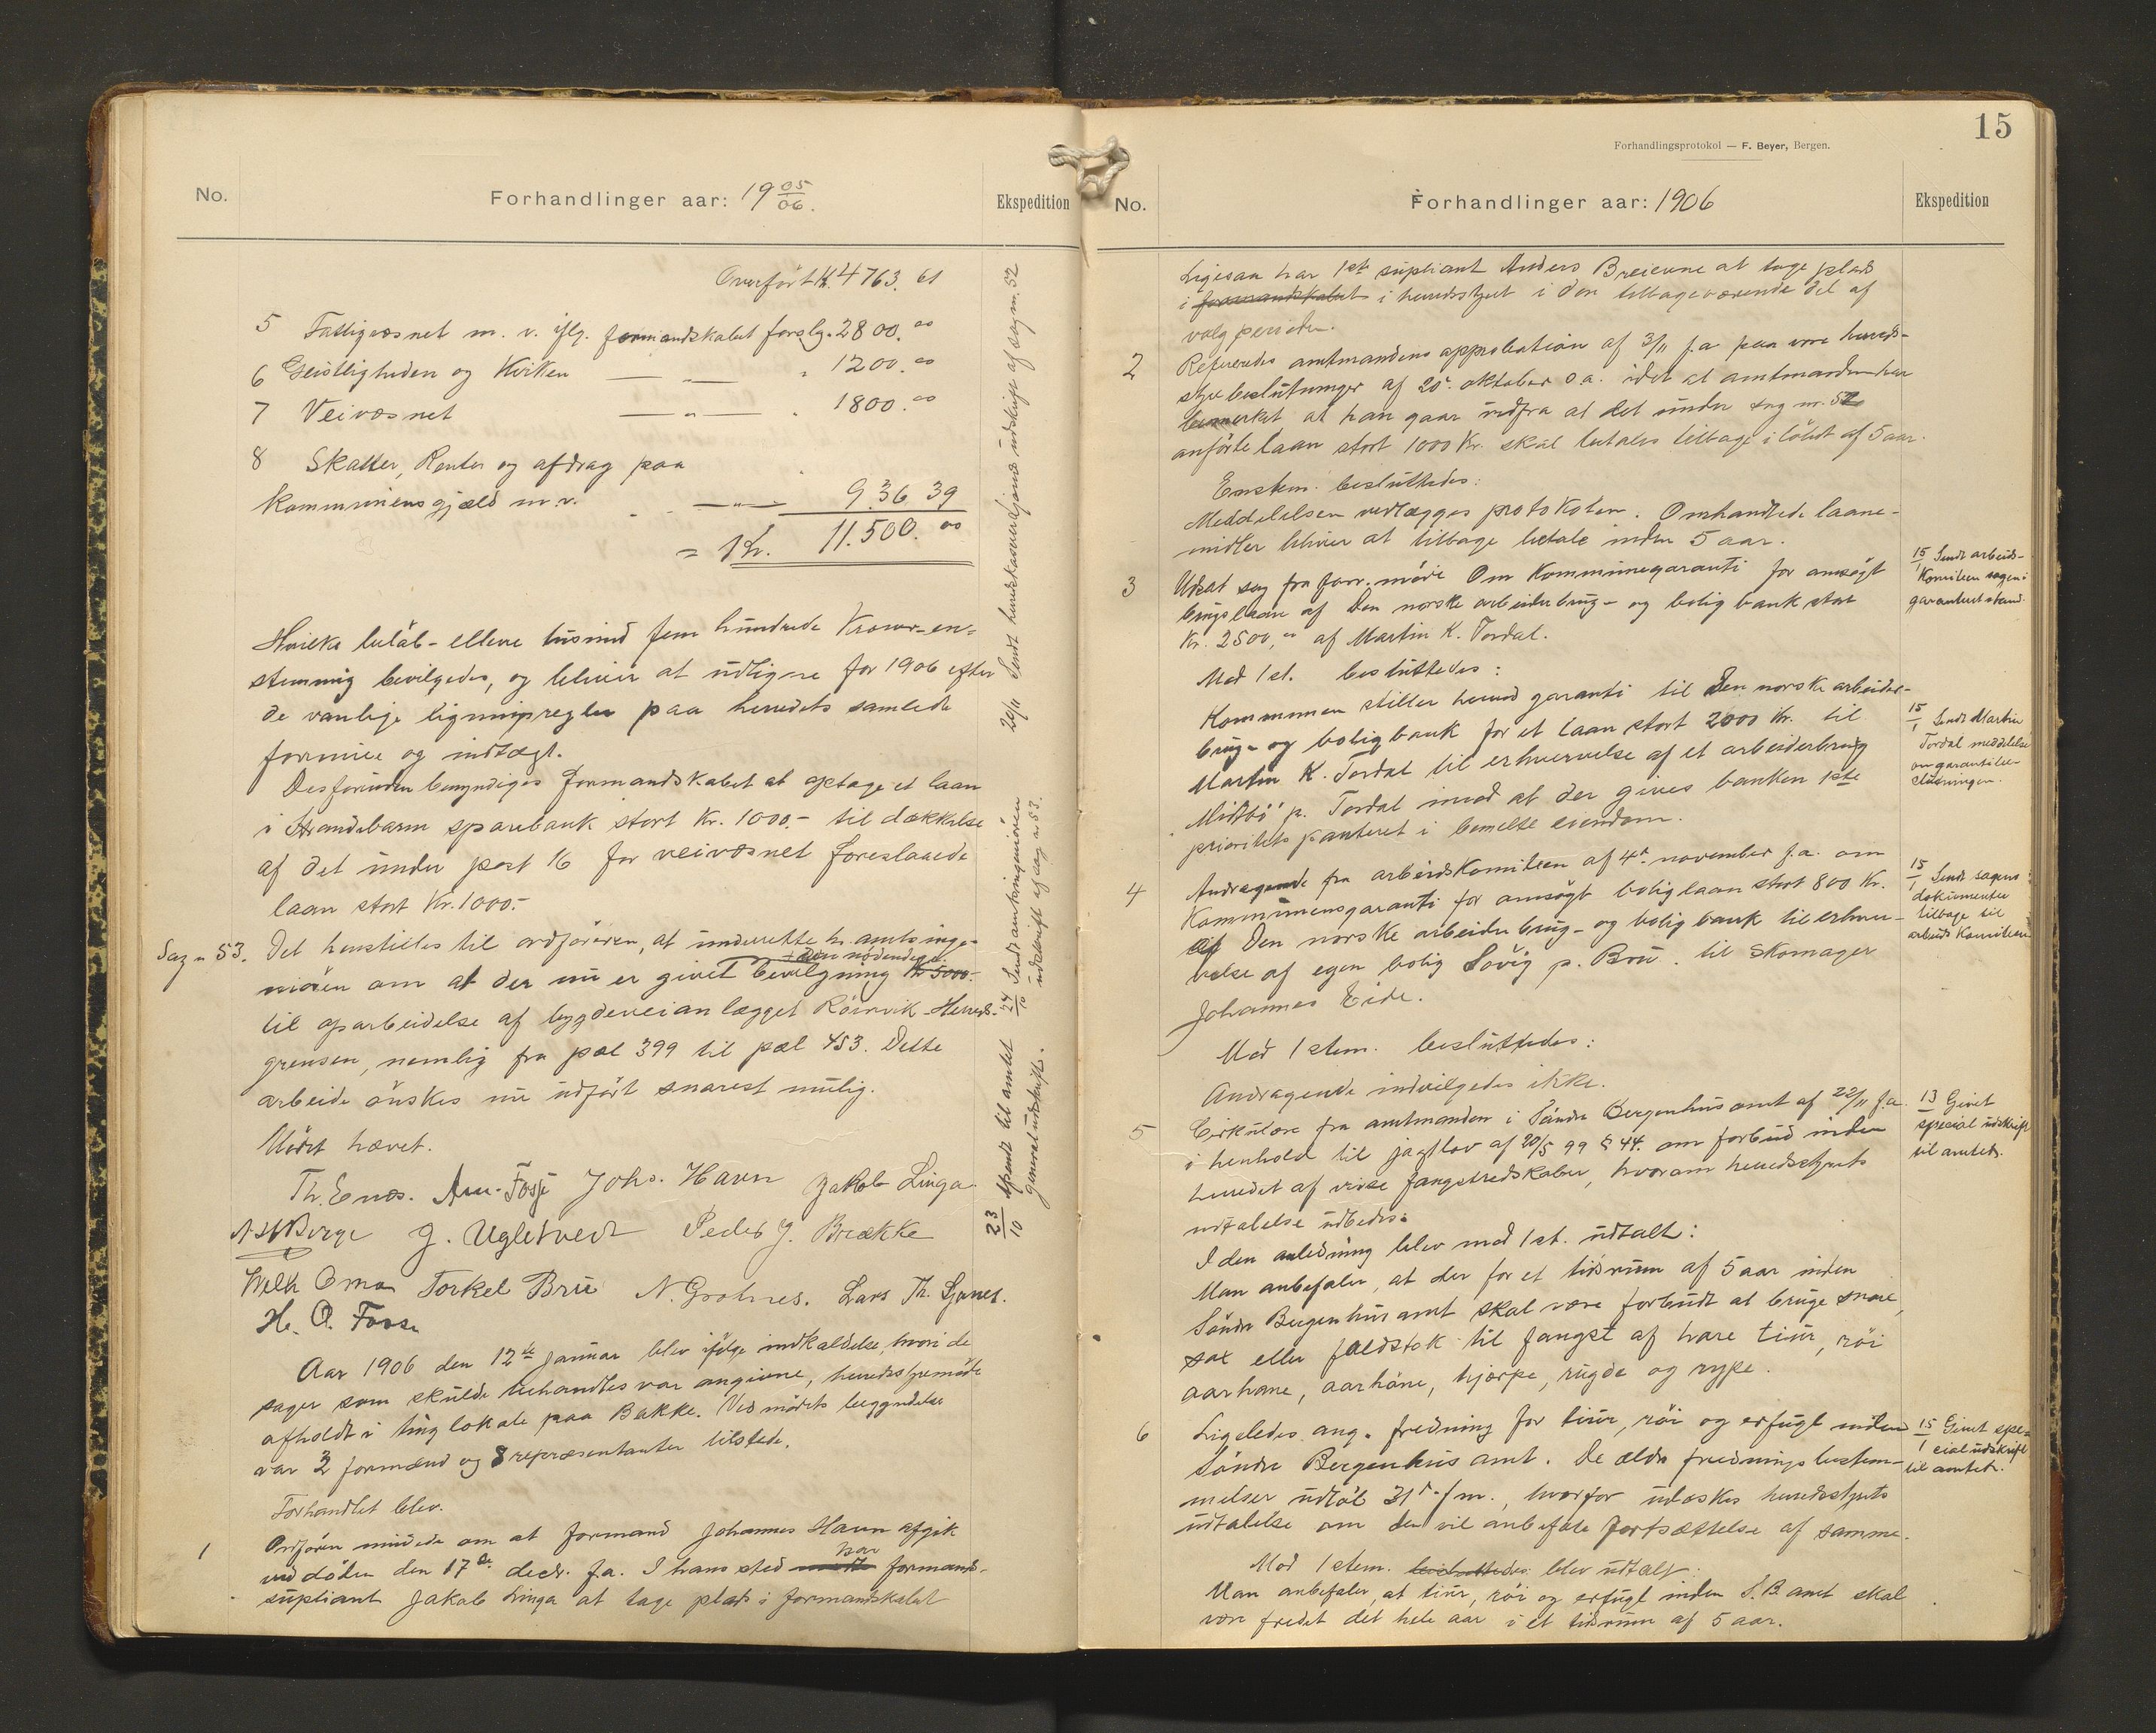 No.
Forhandlinger aar: 19 05/06.
Ekspedition
Overført Kr. 4763. 61
5 Fattigvæsnet m. v. iflg. formandskabet forslg. 2800.00
6 Geistligheden og Kirken — „ — " 1200.00
7 Veivæsnet — „ — " 1800.00
8 Skatter, Renter og afdrag paa
kommunens gjæld m.v. — „ — 936 39
= Kr. 11.500.00
Hvilke beløb - elleve tusind fem hundrede Kroner - en-
stemmig bevilgedes, og bliver at udligne for 1906 efter
de vanlige ligningsregler paa herredets samlede
formue og indtægt.
Desforuden bemyndiges formandskabet at optage et laan
i Strandebarm sparebank stort Kr. 1000.- til dækkelse
af det under post 16 for veivæsnet foreslaaede
laan stort Kr. 1000.-
Sag n 53. Det henstilles til ordføreren, at underrette hr. amtsinge-
niøren om at der nu er givet den nødendige bevilgning Kr 5000.-
til oparbeidelse af bygdeveianlægget Røirvik - Herreds-
grensen, nemlig fra pæl 399 til pæl 453. Dette
arbeide ønskes nu udført snarest mulig.
Mødet hævet.
Th. Enes. Am. Fosse Johs. Havn Jakob Linga
N H Berge J. Ugletvedt Peder J. Brække
Wilh Oma Torkel Bru N. Grotnes. Lars Th. Sjanes.
H. O. Fosse
Aar 1906 den 12te januar blev ifølge indkaldelse, hvori de
sager som skulde behandles var angivne, herredsstyremøde
afholdt i tinglokale paa Bakke. Ved mødets begyndelse
var 3 formænd og 8 repræsentanter tilstede.
Forhandlet blev.
1 Ordføren mindede om at formand Johannes Havn afgik
ved døden den 17de decbr. f.a. I hans sted har formands-
supliant Jakob Linga at tage plads i formandskabet
20/11 Sendt herredskasserer udskrift af sag nr. 52
24/10 Sendt amtsingeniøren udskrift af sag n 53.
23/10 Sendt til amtet generaludskrift.
15
Forhandlingsprotokol — F. Beyer, Bergen.
No.
Forhandlinger aar: 1906
Ekspedition
Ligesaa har 1ste supliant Anders Breievne at tage plads
i formandskabet i herredsstyret i den tilbageværende del af
valgperioden.
2 Refereredes amtmandens approbation af 3/11 f.a. paa vore herreds-
styrebeslutninger af 20. oktober s.a. idet at amtmanden har
bemerket at han gaar udfra at det under sag nr. 52
anførte laan stort 1000 Kr. skal betales tilbage i løbet af 5 aar.
Enstem. besluttedes:
Meddelelsen vedlægges protokolen. Omhandlede laane-
midler bliver at tilbage betale inden 5 aar.
3 Udsat sag fra forr. møde Om Kommunegaranti for ansøgt
brugslaan af Den norske arbeiderbrug- og boligbank stort
Kr. 2500,00 af Martin K. Tordal.
Mod 1 st. besluttedes:
Kommunen stiller herved garanti til Den norske arbeider-
brug- og boligbank for et laan stort 2000 Kr. til
Martin K. Tordal til erhvervelse af et arbeiderbrug
"Midtbø" p. Tordal imod at der gives banken 1ste
prioritets panteret i bemelte eiendom.
4 Andragende fra arbeidskomiteen af 4de november f.a. om
Kommunens garanti for ansøgt boliglaan stort 800 Kr.
af Den norske arbeiderbrug- og boligbank til erhver-
velse af egen bolig Solvig p. Bru. til Skomager
Johannes Eide.
Mod 1 stem. besluttedes:
Andragende indvilgedes ikke.
5 Cirkulære fra amtmanden i Søndre Bergenhus amt af 22/11 f.a.
i henhold til jagtlov af 20/5 99 § 44. om forbud inden
herredet af visse fangstredskaber, hvorom herredsstyrets
udtalelse udbedes.
I den anledning blev mod 1 st. udtalt:
Man anbefaler, at der for et tidsrum af 5 aar inden
Søndre Bergenhus amt skal være forbudt at bruge snare,
sax eller fældstok til fangst af hare tiur, røi
aarhane, aarhøne, hjærpe, rugde og rype.
6 Ligeledes ang. fredning for tiur, røi og erfugl inden
Søndre Bergenhus amt. De ældre fredningsbestem-
melser udløb 31te f.m., hvorfor udæskes herredsstyrets
udtalelse om den vil anbefale fortsættelse af samme.
Mod 1 stem. besluttedes blev udtalt:
Man anbefaler, at tiur, røi og erfugl inden S. B amt skal
være fredet det hele aar i et tidsrum af 5 aar.
15/1 Sendt arbeids-
komiteen sagen i
garantert stand.
15/1 Sendt Martin
Tordal meddelelse
om garantibe-
slutningen.
15/1 Sendt sagens
dokumenter
tilbage til
arbeids komiteen
13 Givet
special udskrift
til amtet.
15/1 Givet spe-
cial udskrift
til amtet.